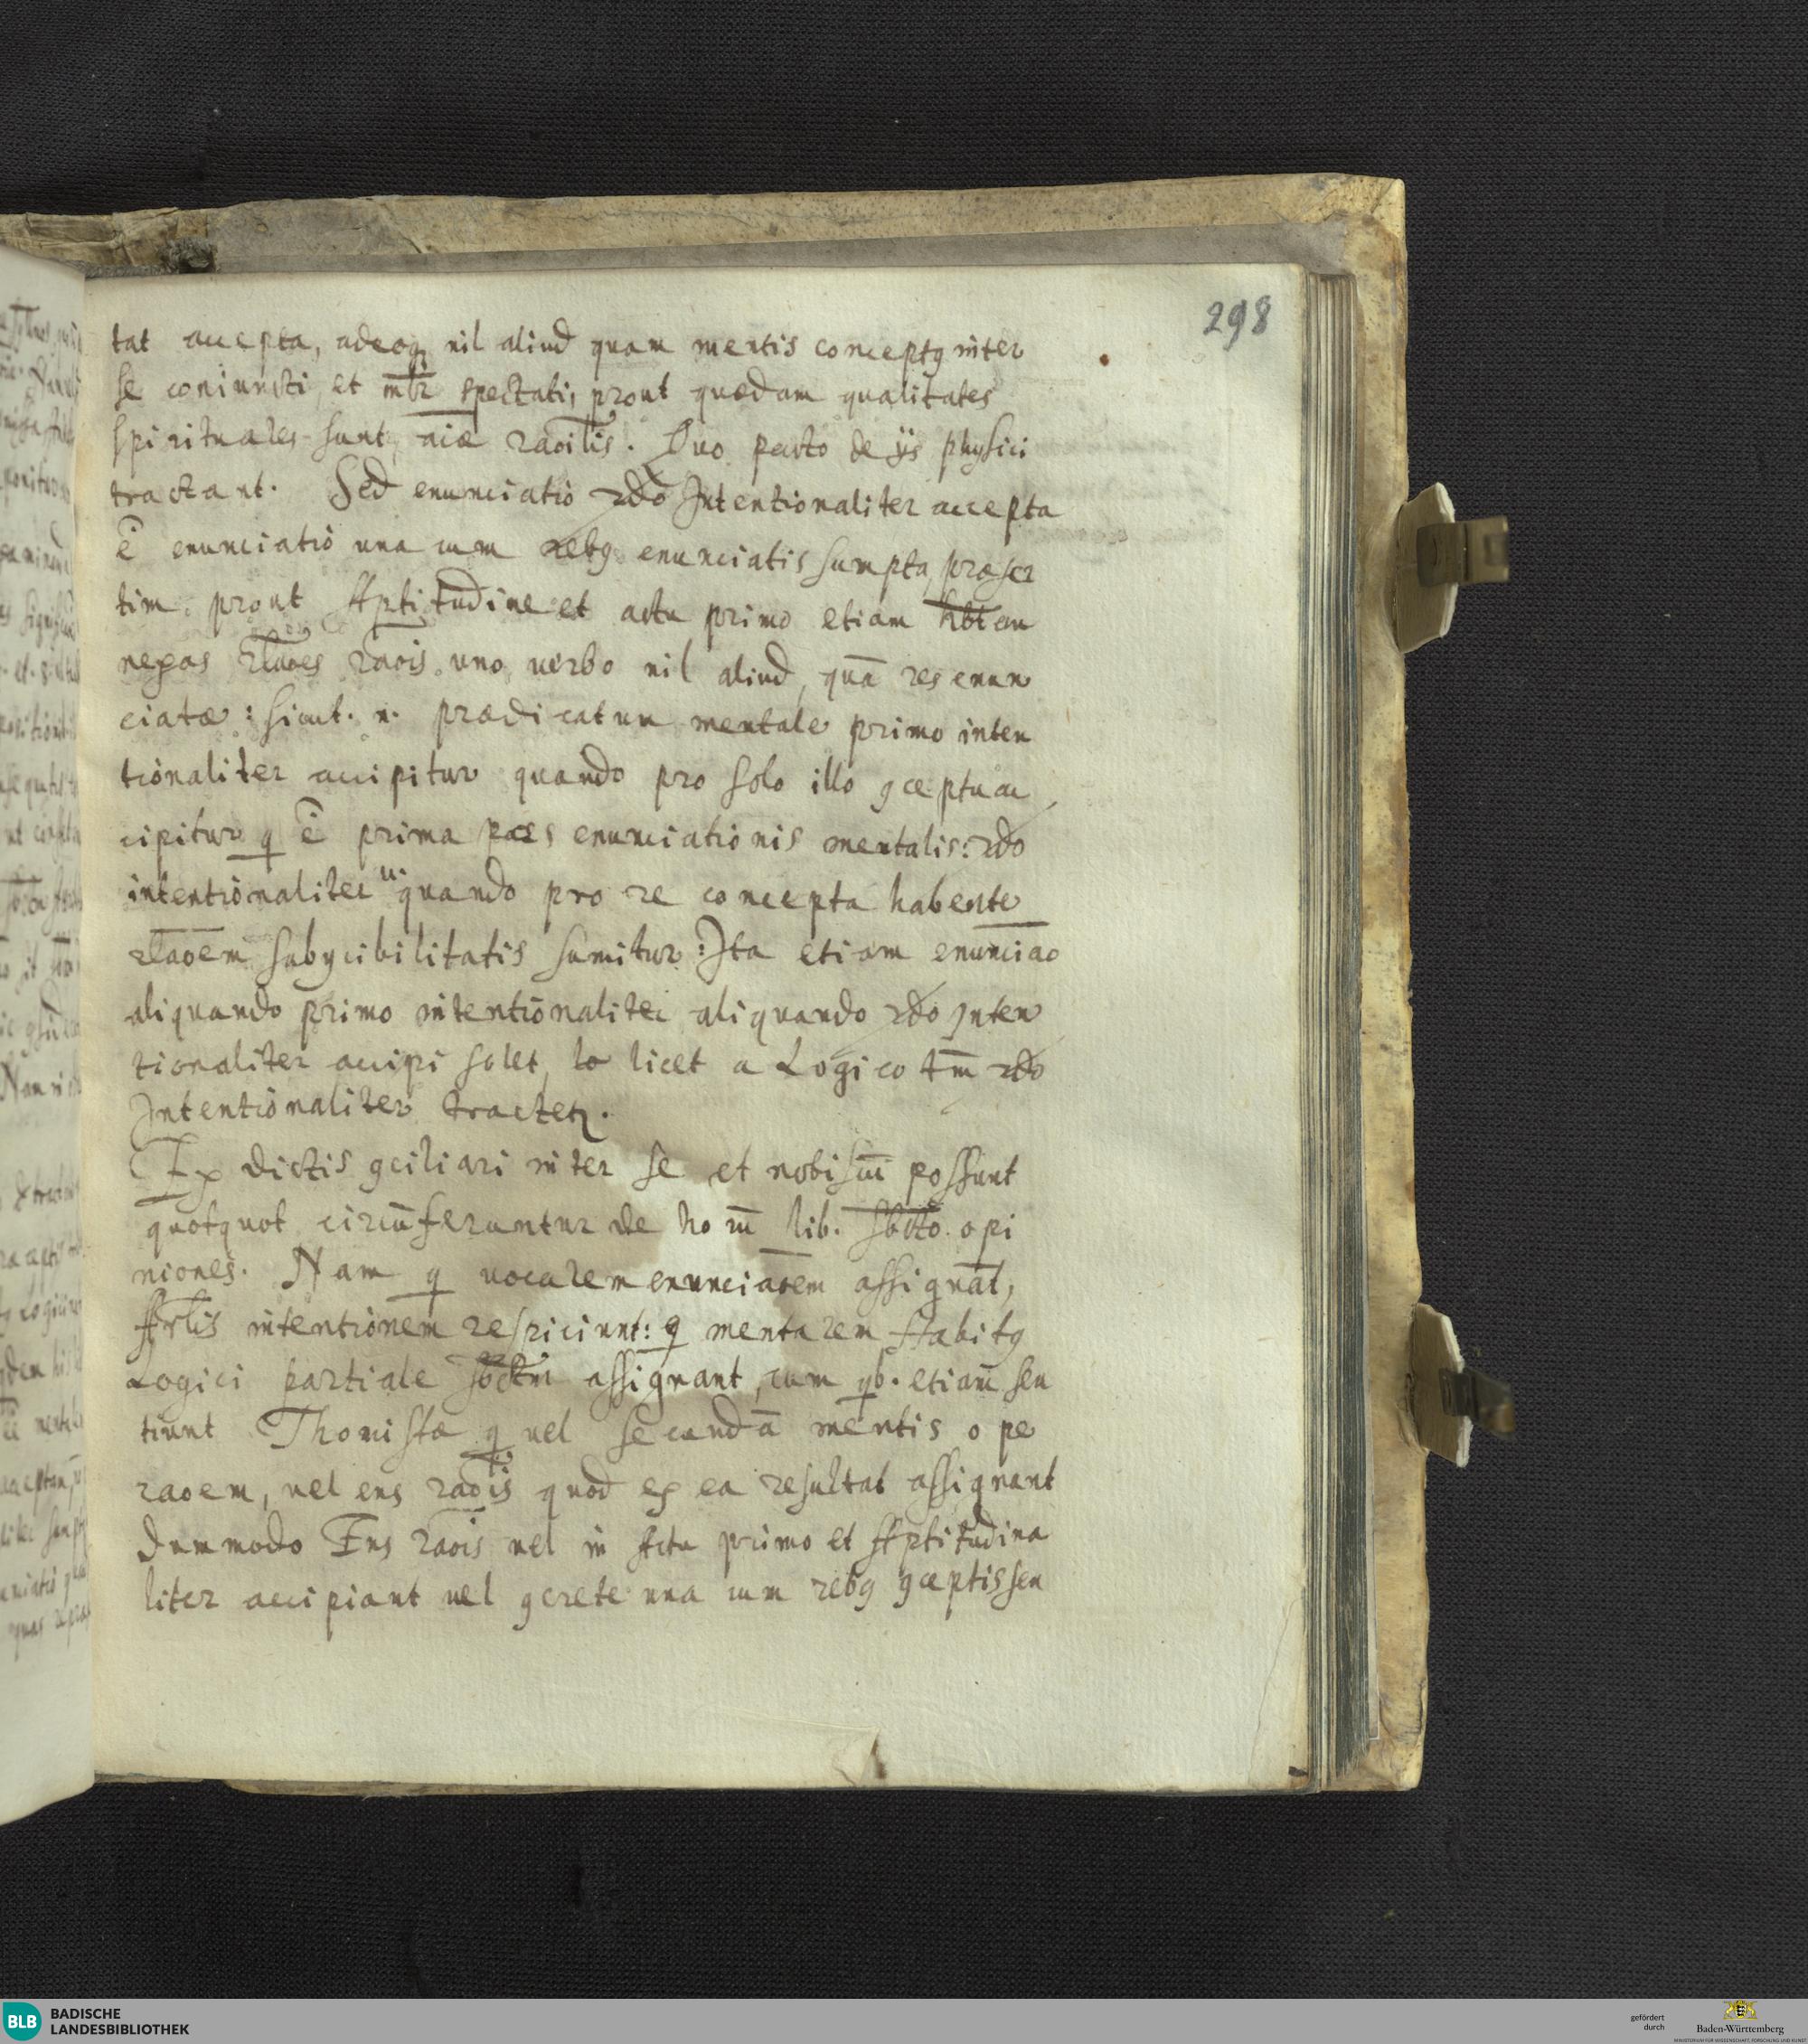 298
tat accepta, adeoq nil aliud quam mentis conceptg inter
se coniuncti, et mlr spectati, prout quædam qualitates
spirituales sunt, aiæ raoilis. Quo pacto de ijs physici
tractant. Sed enunciatio 2do Intentionaliter accepta
ē enunciatio una cum rebg enunciatis sumpta, præser
tim prout Aptitudine et actu primo etiam hbt en
negas rlaoes raois uno verbo nil aliud, quā res enun
ciatæ: sicut. n. prædicatun mentale primo inten
tionaliter accipitur quando pro solo illo gceptu ac
cipitur q ē prima pars enunciationis mentalis: 2do
intentionaliter u. quando pro re concepta habente
rlaoem subycibilitatis sumitur: Ita etiam enunciao
aliquando primo intentionaliter aliquando 2do Inten
tionaliter accipi solet, lo licet a Logico tm 2do
Intentionaliter tractet.
Ex dictis gciliari inter se et nobiscū possunt
quotquot circūferuntur de ho rū lib. sbcto opi
niones. Nam q vocalem enunciaoem assignāt,
Arlis intentionem respiciunt: q mentalem Habitg
Logici partiale sbctm assignant, cum qb. etiam sen
tiunt Thomistæ q vel secundā mentis ope
raoem, vel ens raois quod ex ea resultat assignant
Dummodo Ens raois vel in Actu primo et Aptitudina
liter accipiant vel gcrete una cum rebg gceptis seu
BLB BADISCHE
LANDESBIBLIOTHEK
gefördert
durch
Baden-Württemberg
MINISTERIUM FÜR WISSENSCHAFT, FORSCHUNG UND KUNST